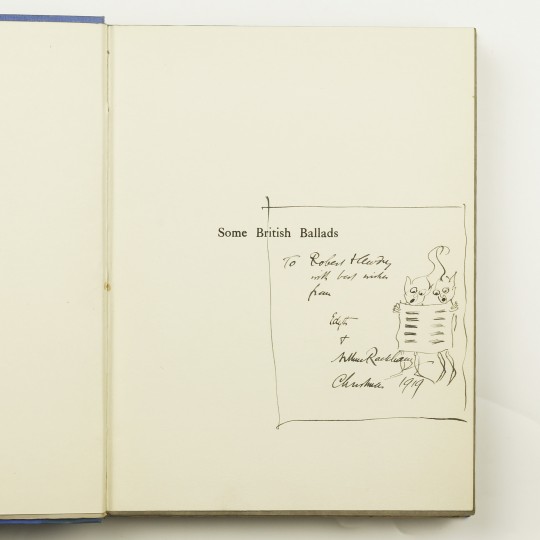 Some British Ballads
To Robert & Audry
with best wishes
from
Edyth
&
Arthur Rackham
Christmas 1919